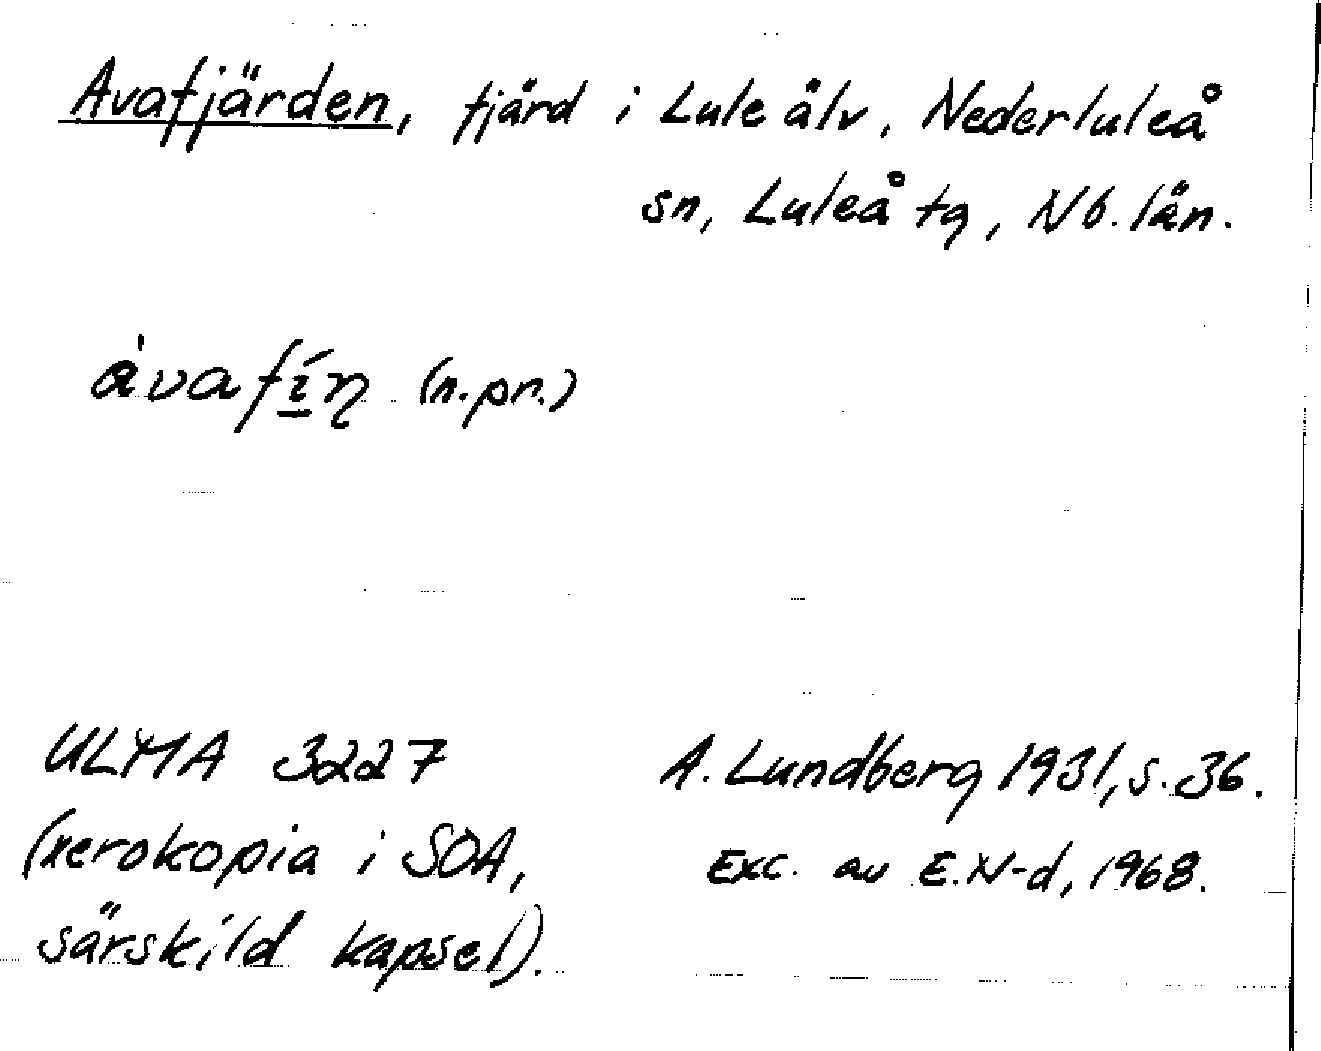 Avafjärden, fjärd i Lule älv, Nederluleå
sn, Luleå tg, Nb. län.
àvafı̱́n (n.pr.)
ULMA 3227
(xerokopia i SOA,
särskild kapsel).
A. Lundberg 1931, s. 36.
Exc. av E.N-d, 1968.